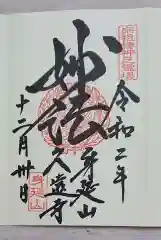 令和二年
妙法
身延山
久遠寺
十二月卅日
身延山